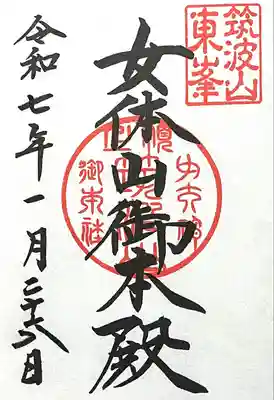 筑波山
東峯
女体山御本殿
令和七年一月二十六日